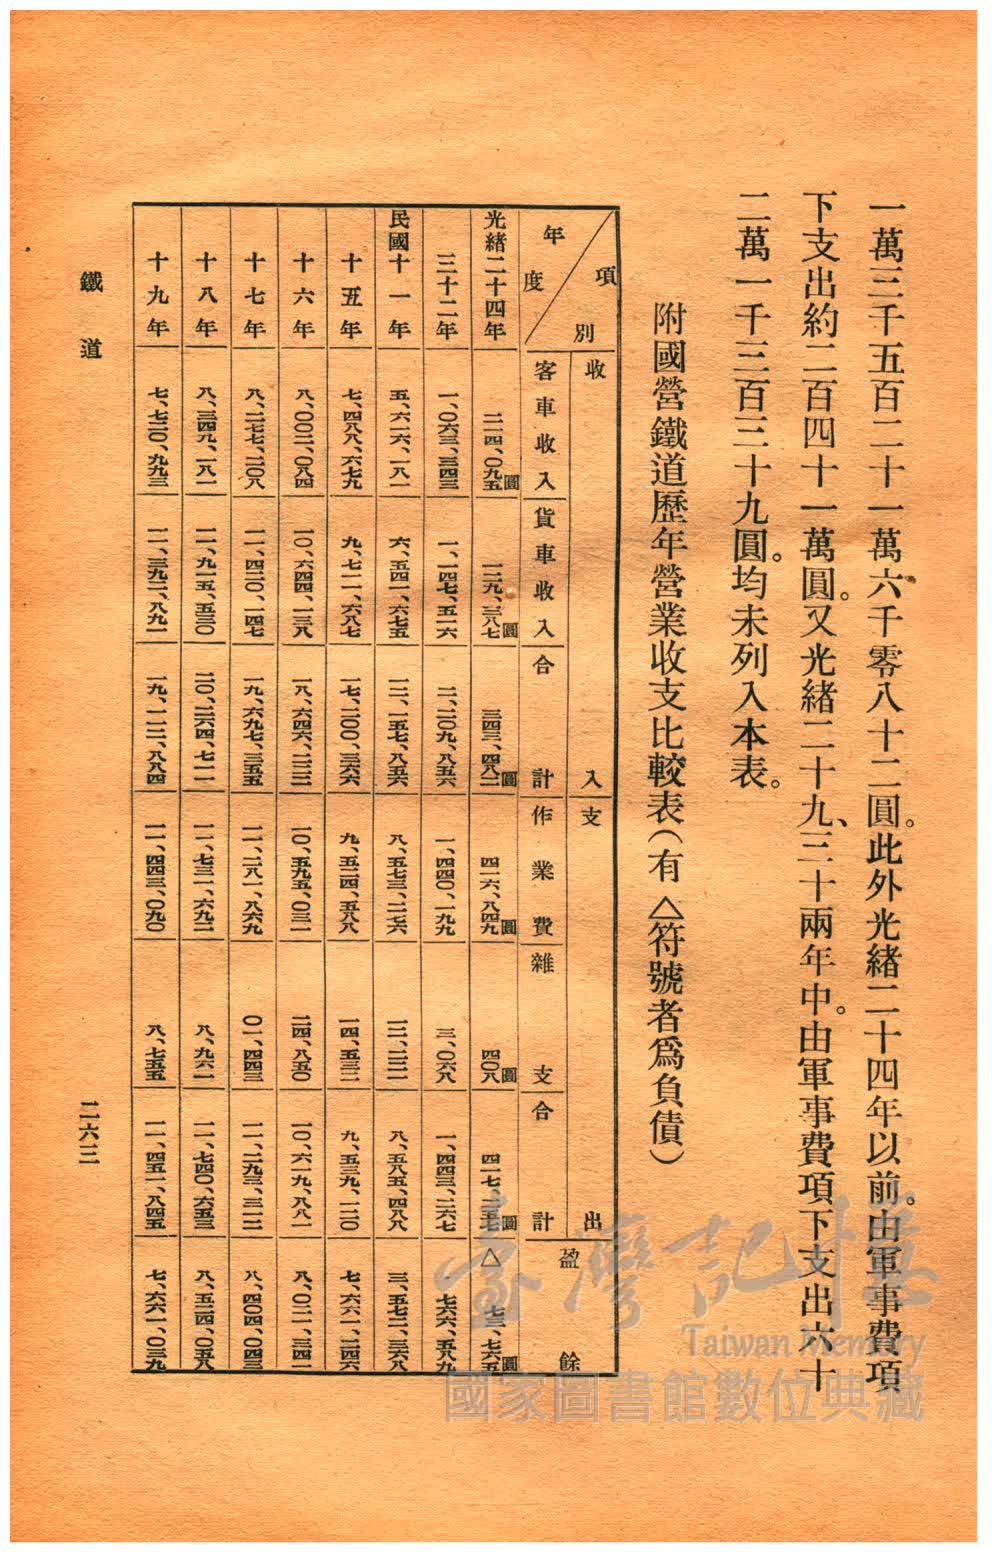 一萬三千五百二十一萬六千零八十二圓。此外光緒二十四年以前。由軍事費項
下支出約二百四十一萬圓。又光緒二十九、三十兩年中。由軍事費項下支出六十
二萬一千三百三十九圓。均未列入本表。
附國營鐵道歷年營業收支比較表（有△符號者爲負債）
項別 年度 收入 支出 盈餘
客車收入 貨車收入 合計 作業費 雜支 合計
光緒二十四年 二一四、〇九五圓 一二九、三八七圓 三四三、四八二圓 四一六、八四九圓 四〇八圓 四一七、二五七圓 △七三、七六五圓
三十二年 一、〇六三、三四三 一、一四七、五一六 二、二〇九、八五六 一、四四〇、一九九 三、〇六八 一、四四三、二六七 七六六、五八九
民國十一年 五、六一六、一八一 六、五四一、六七五 一二、一五七、八五六 八、五七三、二七六 一二、二一二 八、五八五、四八八 三、五七二、三六八
十五年 七、四八八、六七九 九、七一一、六八七 一七、二〇〇、三六六 九、五二四、五八八 一四、五三二 九、五三九、一二〇 七、六六一、二四六
十六年 八、〇〇二、〇八四 一〇、六四四、一三八 一八、六四六、二二二 一〇、五九五、〇三一 二四、八五〇 一〇、六一九、八八一 八、〇二一、三四一
十七年 八、二七七、二〇八 一一、四二〇、一四七 一九、六九七、三五五 一一、二八一、八六九 〇一、四四三 一一、二九三、三一二 八、四〇四、〇四三
十八年 八、三四九、一八一 一一、九一五、五三〇 二〇、二六四、七一一 一一、七三一、六九二 八、九六一 一一、七四〇、六五三 八、五二四、〇五八
十九年 七、七二〇、九九三 一一、三九一、八九一 一九、一一二、八八四 一一、四四三、〇九〇 八、七五五 一一、四五一、八四五 七、六六一、〇三九
鐵道
二六三
臺灣記憶
Taiwan Memory
國家圖書館數位典藏